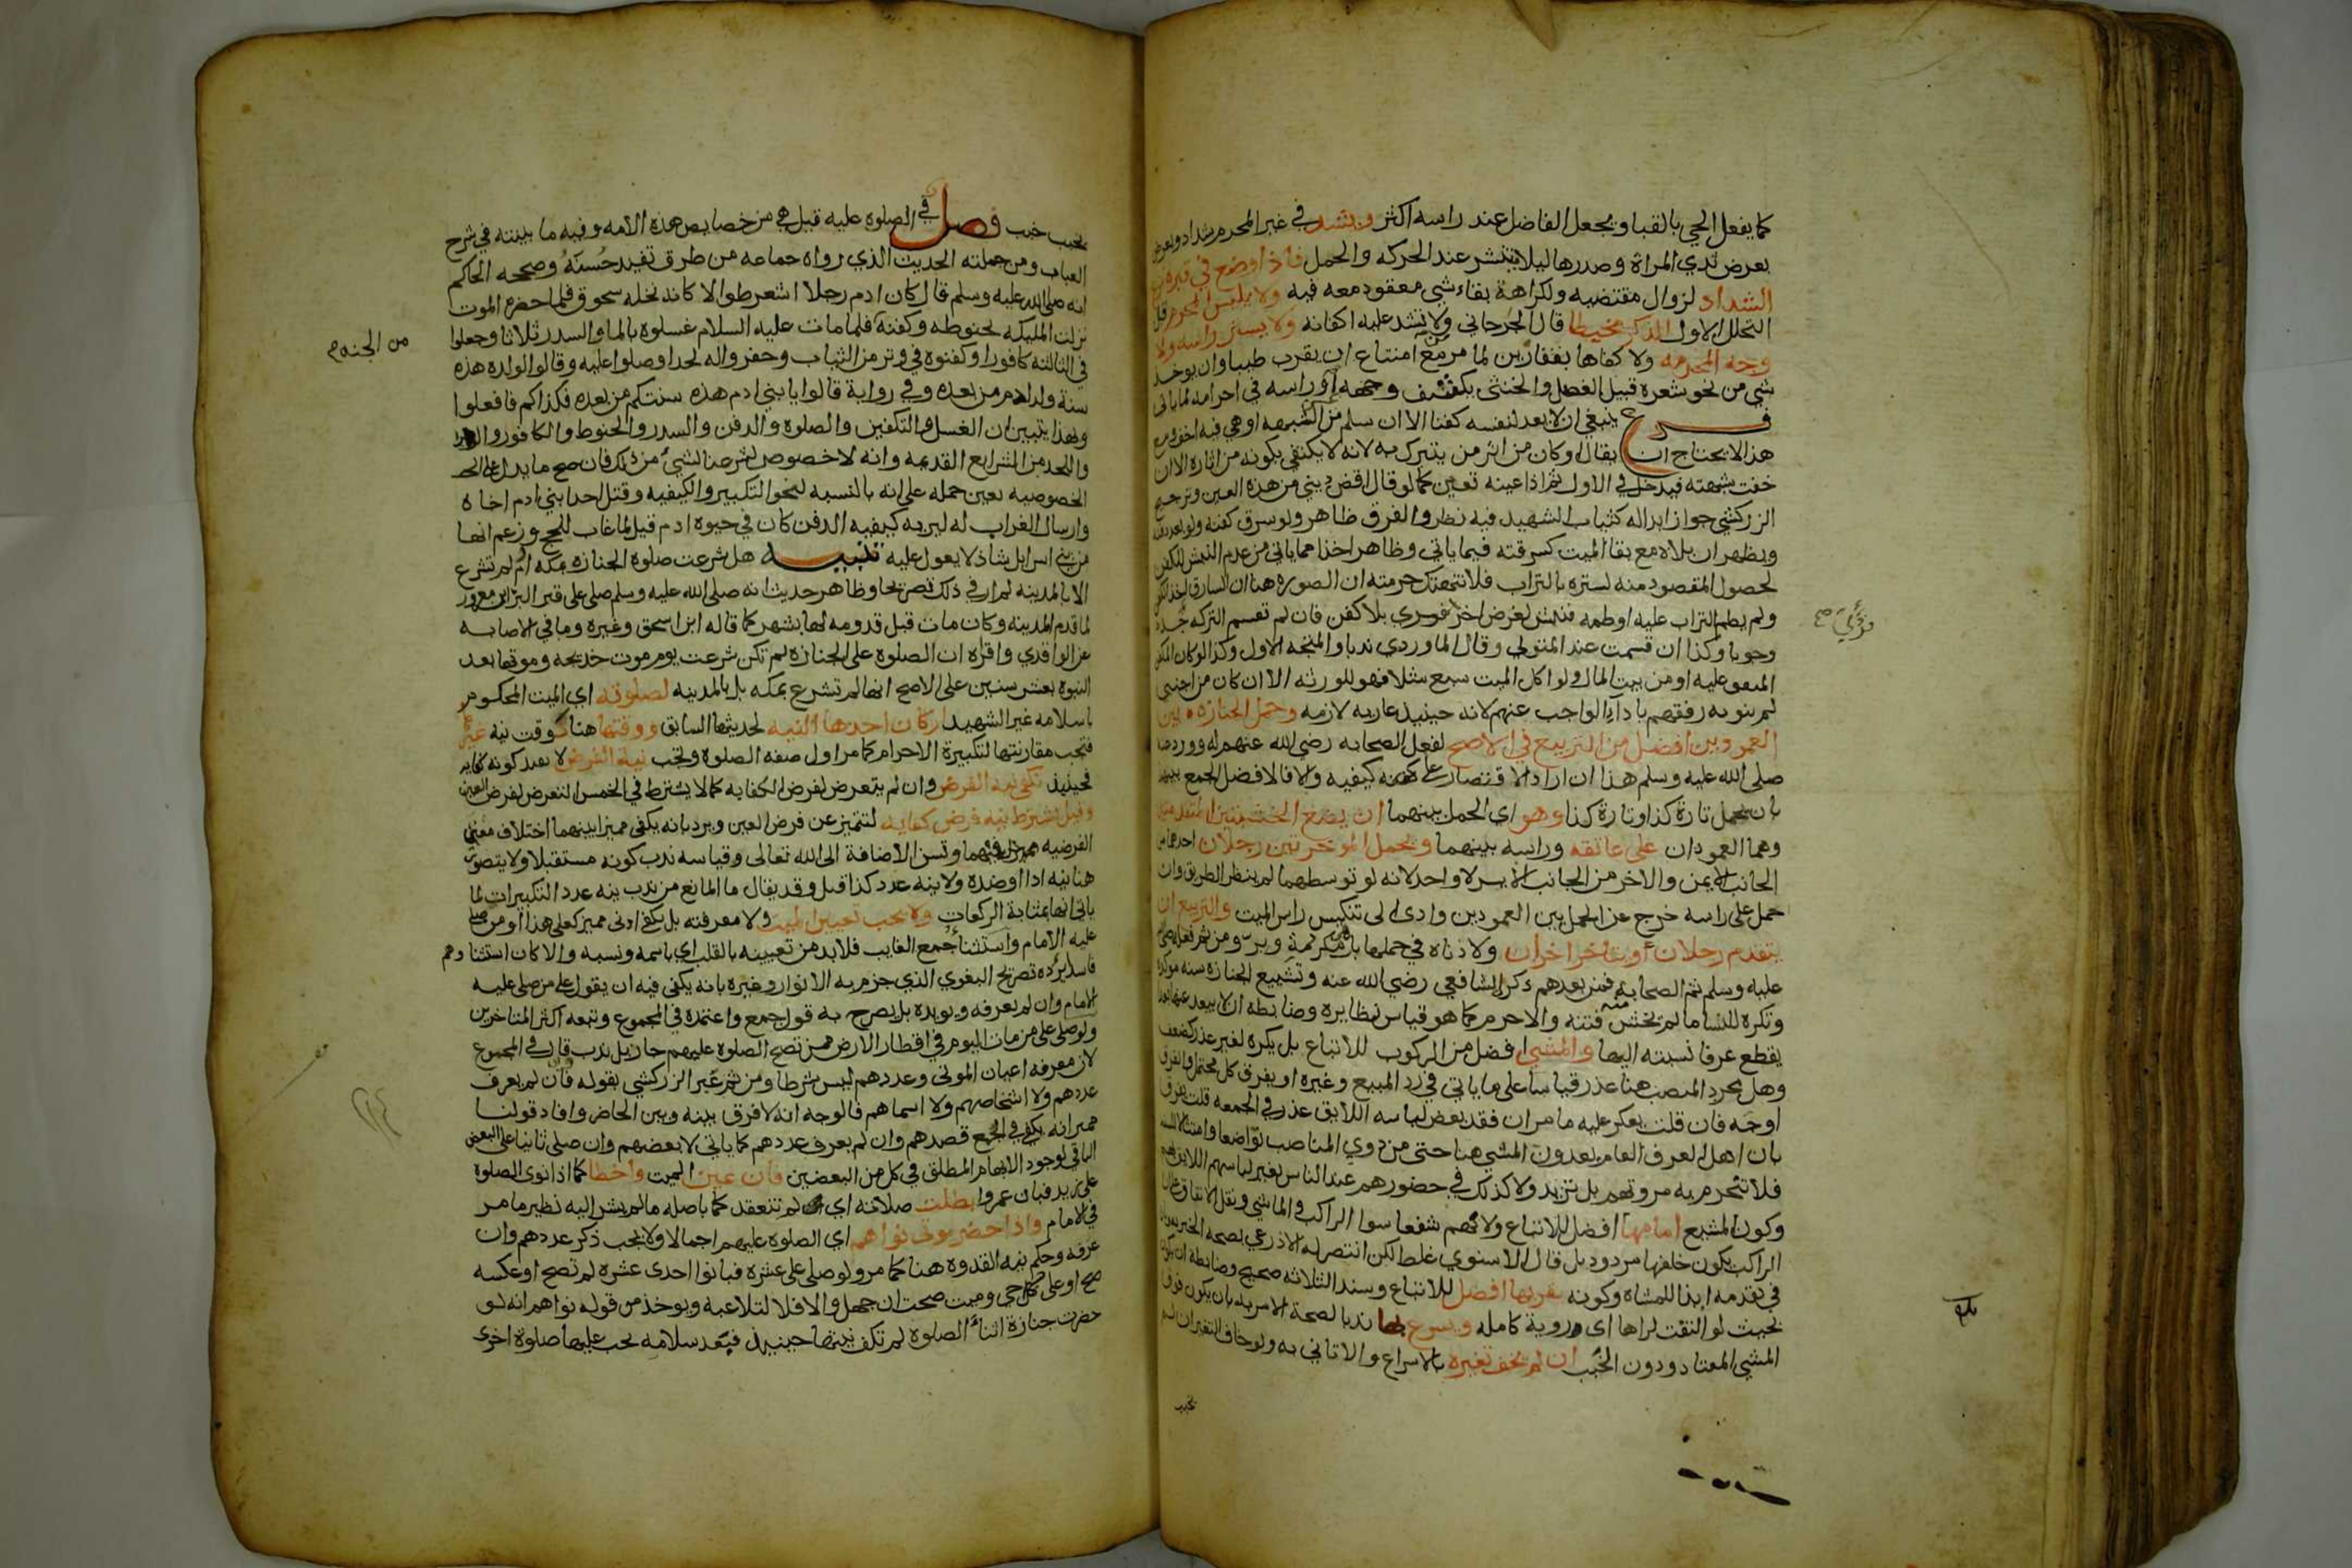 كما يفعل الحي بالقبا ويجعل الفاضل عند راسه اكثر ويشد في غير المحرم بشداد ويعرض
بعرض ثدي المراة وصدرها ليلا ينتشر عند الحركه والحمل فاذا وضع في قبره نزع
الشداد لزوال مقتضيه ولكراهة بقاء شي معقود معه فيه ولا يلبس المحرم قبل
التحلل الاول الذكر مخيطا قال الجرجاني ولا تشد عليه اكفانه ولا يستر راسه ولا
وجه المحرمه ولا كفاها بقفازين لما مر مع امتناع ان يقرب طيبا وان يوخذ
شي من نحو شعره قبيل الفصل والخنثى يكشف وجهه او راسه في احرامه لما ياتي
فرع ينبغي ان لا يعد لنفسه كفنا الا ان سلم من الشبهه او هي فيه اخف ومع
هذا لا يحتاج ان يقال او كان من اثر من يتبرك به لانه لا يكتفي بكونه من اثاره الا ان
خفت شبهته فيدخل في الاول ثم اذا عينه تعين كما لو قال اقض ديني من هذه العين وترجيح
الزركشي جواز ابداله كثياب الشهيد فيه نظر والفرق ظاهر ولو سرق كفنه ولو بعد دفنه
ويظهر ان بلاه مع بقا الميت كسرقته فيما ياتي وظاهر اخذا مما ياتي من عدم النبش للكفن
لحصول المقصود منه لستره بالتراب فلا تنتهك حرمته ان الصوره هنا ان السارق اخذ الكفن
ولم يطم التراب عليه او طمه فنبش لغرض اخر فرؤي بلا كفن فان لم تقسم التركه جدد
وجوبا وكذا ان قسمت عند المتولي وقال الماوردي ندبا والمتجه الاول وكذا لو كان المكفن
المنفق عليه او من بيت المال ولو اكل الميت سبع مثلا فهو للورثه الا ان كان من اجنبي
لم ينو به رفقتهم باداء الواجب عنهم لانه حينيذ عاريه لازمه وحمل الجنازه بين
العمودين افضل من التربيع في الاصح لفعل الصحابه رضي الله عنهم له وورد عنه
صلى الله عليه وسلم هذا ان اراد الاقتصار على كيفيه والا فالافضل الجمع بينهما
بان يحمل تارة كذا وتارة كذا وهو اي الحمل بينهما ان يضع الخشبتين المتقدمتين
وهما العمودان على عاتقه وراسه بينهما ويحمل الموخرتين رجلان احدهما من
الجانب الايمن والاخر من الجانب الايسر لا واحد لانه لو توسطهما لم ينظر الطريق وان
حمل على راسه خرج عن الحمل بين العمودين وادى الى تنكيس راس الميت والتربيع ان
يتقدم رجلان ويتاخر اخران ولا دناه في حملها بل مكرمة وبر ومن ثم فعله صلى
عليه وسلم ثم الصحابة فمن بعدهم ذكر الشافعي رضي الله عنه وتشييع الجنازه سنه موكده
وتكره للنسا ما لم تخش منه فتنه والا حرم كما هو قياس نظايره وضابطه ان لا يبعد عنها بعدا
يقطع عرفا نسبته اليها والمشي افضل من الركوب للاتباع بل يكره لغير عذر كضعف
وهل مجرد المنصب هنا عذر قياسا على ما ياتي في رد المبيع وغيره او يفرق كل محتمل والفرق
اوجه فان قلت يعكر عليه ما مر ان فقد بعض لباسه اللايق عذر في الجمعه قلت يفرق
بان اهل العرف العام يعدون المشي هنا حتى من ذوي المناصب تواضعا وامتثالا للسنه
فلا تنخرم به مروتهم بل تزيد ولا كذلك في حضورهم عند الناس بغير لباسهم اللايق بهم
وكون المشيع امامها افضل للاتباع ولانهم شفعا سوا الراكب والماشي ونقل الاتفاق على ان
الراكب يكون خلفها مردود بل قال الاسنوي غلط لكن انتصر له الاذرعي بصحه الخبر به وبان
في تقدمه ايذا للمشاه وكونه بقربها افضل للاتباع وسند الثلاثه صحيح وضابطه ان يكون
بحيث لو التفت لراها اي روية كامله ويسرع بها ندبا لصحة الامر به بان يكون فوق
المشي المعتاد ودون الخبب ان لم يخف تغيره بالاسراع والا تاني به ولو خاف التغير ان لم
يخبب
فرؤي صح
بلغ
يخبب خبب فصل في الصلوة عليه قيل هي من خصايص هذه الامه وفيه ما بينته في شرح
العباب ومن جملته الحديث الذي رواه جماعه من طرق تفيد حسنه وصححه الحاكم
انه صلى الله عليه وسلم قال كان ادم رجلا اشعر طوالا كانه نخله سحوق فلما حضره الموت
نزلت المليكه بحنوطه وكفنه فلما مات عليه السلام غسلوه بالما والسدر ثلاثا وجعلوا
في الثالثه كافورا وكفنوه في وتر من الثياب وحفروا له لحدا وصلوا عليه وقالوا لولده هذه
سنة ولد ادم من بعده وفي رواية قالوا يا بني ادم هذه سنتكم من بعده فكذاكم فافعلوا
وبهذا يتبين ان الغسل والتكفين والصلوة والدفن والسدر والحنوط والكافور والوتر
واللحد من الشرايع القديمه وانه لا خصوص لشرعنا لشيء من ذلك فان صح ما يدل على
الخصوصيه تعين حمله على انه بالنسبه لنحو التكبير والكيفيه وقتل احد ابني ادم اخاه
وارسال الغراب له ليريه كيفيه الدفن كان في حيوه ادم قيل لما غاب للحج وزعم انها
من بني اسرايل شاذ لا يعول عليه تنبيه هل شرعت صلوة الجنازه بمكه ام لم تشرع
الا بالمدينه لم ار في ذلك تصريحا وظاهر حديث انه صلى الله عليه وسلم صلى على قبر البرا بن معرور
لما قدم المدينه وكان مات قبل قدومه لها بشهر كما قاله ابن اسحق وغيره وما في الاصابه
عن الواقدي واقراه ان الصلوة على الجنازه لم تكن شرعت يوم موت خديجه وموتها بعد
النبوه بعشر سنين على الاصح انها لم تشرع بمكه بل بالمدينه لصلوته اي الميت المحكوم
باسلامه غير الشهيد اركان احدها النيه لحديثها السابق ووقتها هنا كوقت نيه غيرها
فتجب مقارنتها لتكبيرة الاحرام كما مر اول صفه الصلوة وتجب نية الفرض لا بقيد كونه كفايه
فحينيذ تكفي نيه الفرض وان لم يتعرض لفرض الكفايه كما لا يشترط في الخمس التعرض لفرض العين
وقيل تشترط نيه فرض كفايه لتتميز عن فرض العين ويرد بانه يكفي مميزا بينهما اختلاف معنى
الفرضيه فيهما وتسن الاضافة الى الله تعالى وقياسه ندب كونه مستقبلا ولا يتصور
هنا نيه ادا او ضده ولا نيه عدد كذا قيل وقد يقال ما المانع من ندب نيه عدد التكبيرات لما
ياتي انها بمثابة الركعات ولا يجب تعيين الميت ولا معرفته بل يكفي ادنى مميز كعلى هذا او من صلى
عليه الامام واستثنا جمع الغايب فلا بد من تعيينه بالقلب اي باسمه ونسبه والا كان استثناوهم
فاسدا يرده تصريح البغوي الذي جزم به الانوار وغيره بانه يكفي فيه ان يقول على من صلى عليه
الامام وان لم يعرفه ويويده بل يصرح به قول جمع واعتمده في المجموع وتبعه اكثر المتاخرين
ولو صلى على من مات اليوم في اقطار الارض ممن تصح الصلوة عليهم جاز بل ندب قال في المجموع
لان معرفه اعيان الموتى وعددهم ليس شرطا ومن ثم عبر الزركشي بقوله وان لم يعرف
عددهم ولا اشخاصهم ولا اسماهم فالوجه انه لا فرق بينه وبين الحاضر وافاد قولنا
مميز انه يكفي في الجمع قصدهم وان لم يعرف عددهم كما ياتي لا بعضهم وان صلى ثانيا على البعض
الباقي لوجود الابهام المطلق في كل من البعضين فان عين الميت واخطا كما اذا نوى الصلوة
على زيد فبان عمروا بطلت صلاته اي لم تنعقد كما باصله ما لم يشر اليه نظير ما مر
في الامام واذا حضر موتى نواهم اي الصلوة عليهم اجمالا ولا يجب ذكر عددهم وان
عرفه وحكم نيه القدوه هنا كما مر ولو صلى على عشره فبانوا احدى عشره لم تصح او عكسه
صح او على حي وميت صحت ان جهل والا فلا لتلاعبه ويوخذ من قوله نواهم انه لو
حضرت جنازة اثناء الصلوة لم تكف نيتها حينيذ فبعد سلامه تجب عليها صلوة اخرى
من الجنه